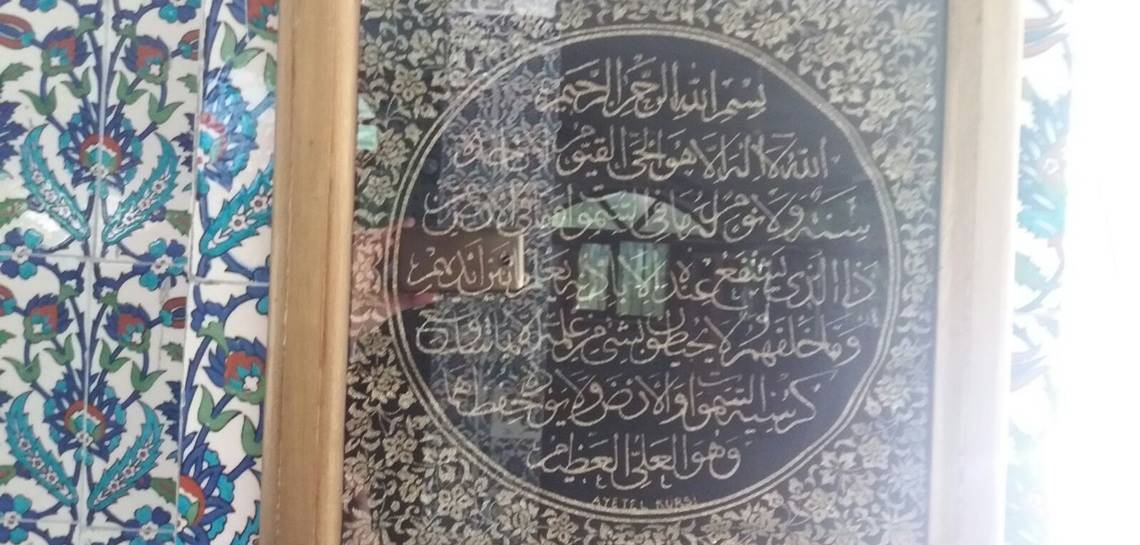 بسم الله الرحمن الرحيم
الله لا اله الا هو الحي القيوم لا تاخذه
سنة ولا نوم له ما في السموات وما في الارض
ذا الذي يشفع عنده الا باذنه يعلم ما بين ايديهم
وما خلفهم ولا يحيطون بشيء من علمه الا بما شاء وسع
كرسيه السموات والارض ولا يؤده حفظهما
وهو العلي العظيم
AYETEL KÜRSİ